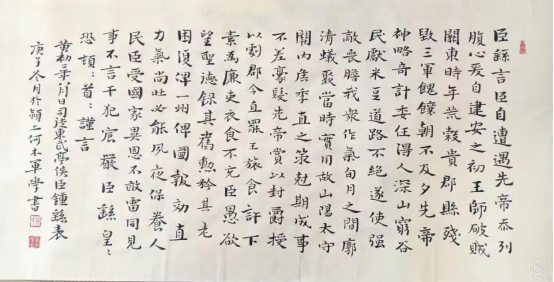 臣繇言臣自遭遇先帝忝列
腹心爰自建安之初王師破賊
關東時年荒穀貴郡縣殘
毀三軍餽饟朝不及夕先帝
神略奇計委任得人深山窮谷
民獻米豆道路不絕遂使強
敵喪膽我眾作氣旬月之間廓
清蟻聚當時實用故山陽太守
關內侯季直之策尅期成事
不差豪髮先帝賞以封爵授
以劇郡今直罷任旅食許下
素為廉吏衣食不充臣愚欲
望聖德錄其舊勳矜其老
困復俾一州俾圖報効直
力氣尚壯必能夙夜保養人
民臣受國家異恩不敢雷同見
事不言干犯宸嚴臣繇皇〻
恐頓〻首〻謹言
黃初二年八月日司徒東武亭侯臣鍾繇表
庚子冬月於潁上何木軍學書